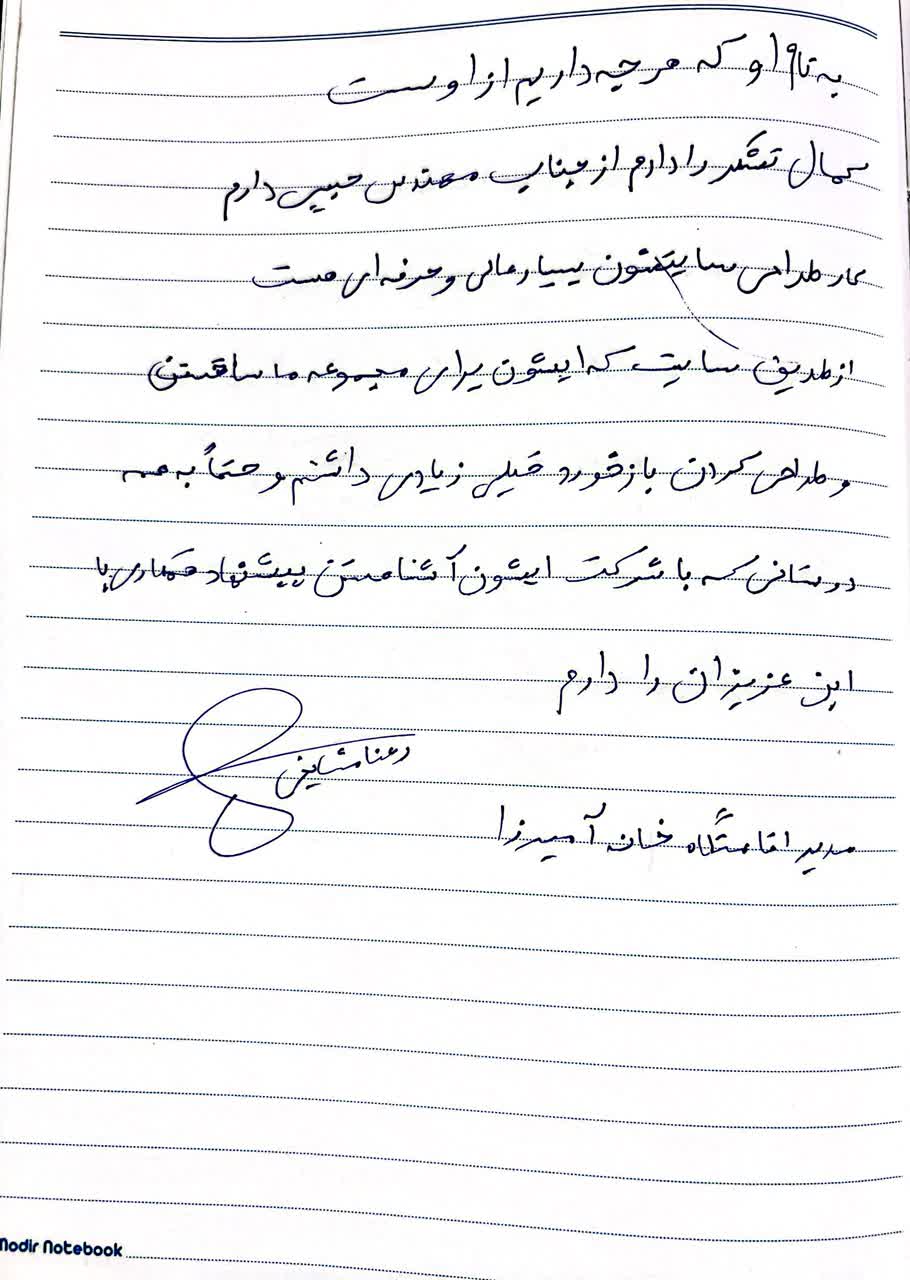 به نام او که هر چه داریم از اوست
کمال تشکر را دارم از جناب مهندس حبیبی دارم
کار طراحی سایتشون بسیار عالی و حرفه ای هست
از طریق سایت که ایشون برای مجموعه ما ساختن
و طراحی کردن بازخورد خیلی زیادی داشتم و حتماً به همه
دوستانی که با شرکت ایشون آشنا هستن پیشنهاد همکاری با
این عزیزان را دارم
رضا مشایخی
مدیر اقامتگاه خانه آمیرزا
Nodir Notebook